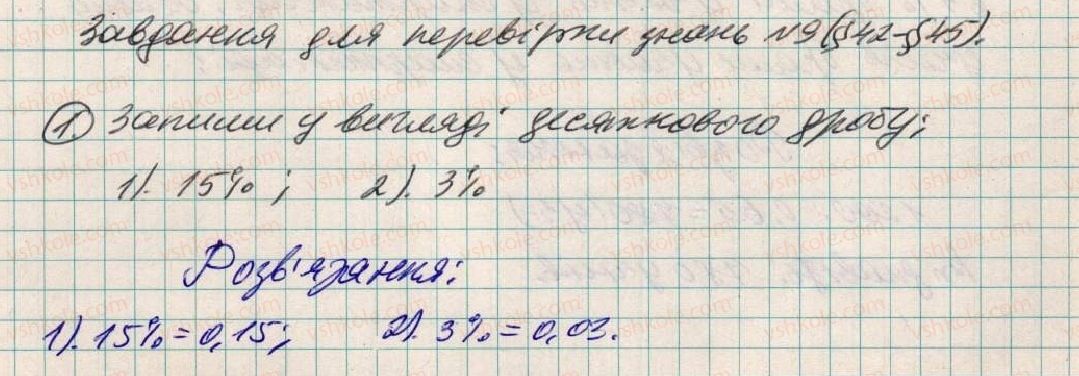 Завдання для перевірки знань №9 (§42-§45).
1. Запиши у вигляді десяткового дробу:
1). 15% ; 2). 3%
Розв'язання:
1). 15% = 0,15; 2). 3% = 0,03.